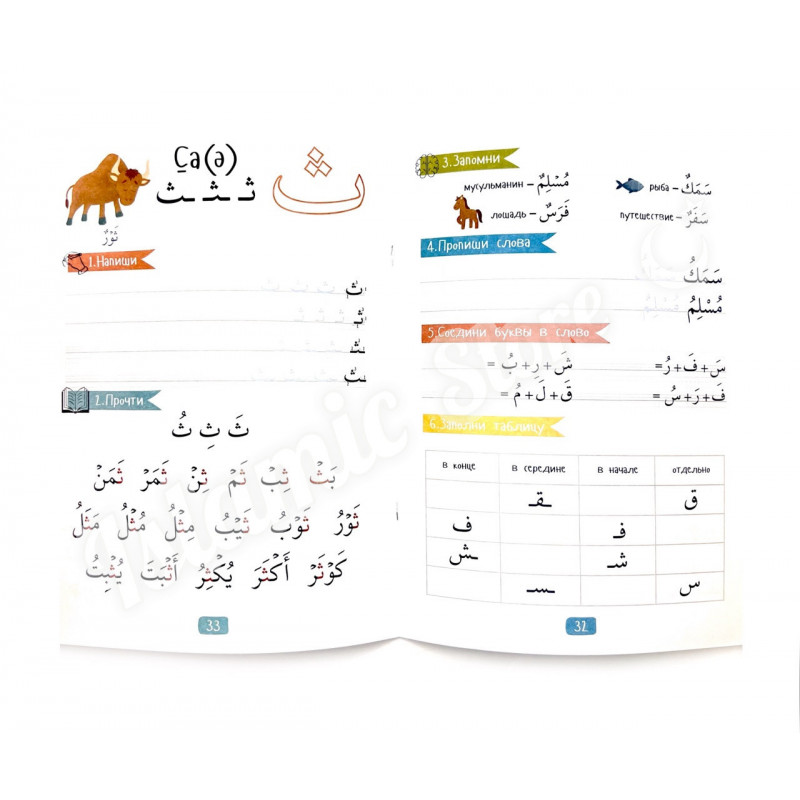 3.Запомни
мусульманин – مُسْلِمٌ рыба – سَمَكٌ
лошадь – فَرَسٌ путешествие – سَفَرٌ
4.Пропиши слова
سَمَكُ
مُسْلِمُ مُسْلِمُ مُسْلِمُ
5.Соедини буквы в слово
سَ+فَ+رُ= شَ+رِ+بُ=
فَ+رَ+سُ= قَ+لَ+مُ=
6.Заполни таблицу
в конце в середине в начале отдельно
ـقـ ق
ف فـ
ـش شـ
ـسـ س
32
Са(ә)
ثـ ـثـ ـث
ث
ثَوْرٌ
1.Напиши
2.Прочти
ثَ ثِ ثُ
بَثْ ثِبْ ثَمْ ثِنْ ثَمَرْ ثَمَنْ
ثَوْرُ ثَوْبُ ثَيْبُ مِثْلُ مُثْلُ مَثَلُ
كَوْثَرْ أَكْثَرَ يُكْثِرُ أَثْبَتَ يُثْبِتُ
33
Islamic Store